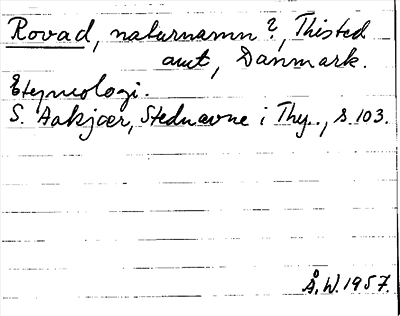 Rovad, naturnamn?, Thisted
amt, Danmark.
Etymologi.
S. Aakjær, Stednavne i Thy., s. 103.
Å. W. 1957.